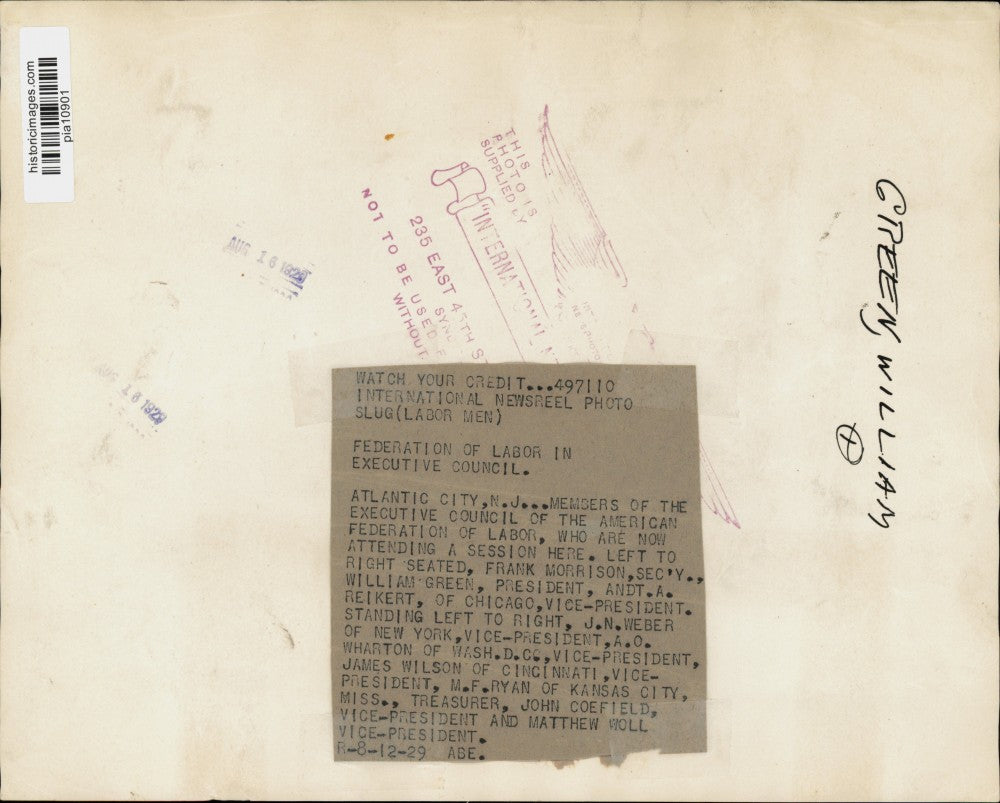 historicimages.com
pia10901
THIS
PHOTO IS
SUPPLIED BY
"INTERNATIONAL
235 EAST 45TH
NOT TO BE USED
WITHOUT
AUG 16 1929
1929
GREEN, WILLIAM
WATCH YOUR CREDIT...497110
INTERNATIONAL NEWSREEL PHOTO
SLUG(LABOR MEN)
FEDERATION OF LABOR IN
EXECUTIVE COUNCIL.
ATLANTIC CITY,N.J...MEMBERS OF THE
EXECUTIVE COUNCIL OF THE AMERICAN
FEDERATION OF LABOR, WHO ARE NOW
ATTENDING A SESSION HERE. LEFT TO
RIGHT SEATED, FRANK MORRISON,SEC'Y.,
WILLIAM GREEN, PRESIDENT, ANDT.A.
REIKERT, OF CHICAGO,VICE-PRESIDENT.
STANDING LEFT TO RIGHT, J.N.WEBER
OF NEW YORK,VICE-PRESIDENT,A.O.
WHARTON OF WASH.D.C.,VICE-PRESIDENT,
JAMES WILSON OF CINCINNATI,VICE-
PRESIDENT, M.F.RYAN OF KANSAS CITY,
MISS., TREASURER, JOHN COEFIELD,
VICE-PRESIDENT AND MATTHEW WOLL
VICE-PRESIDENT.
R-8-12-29 ABE.